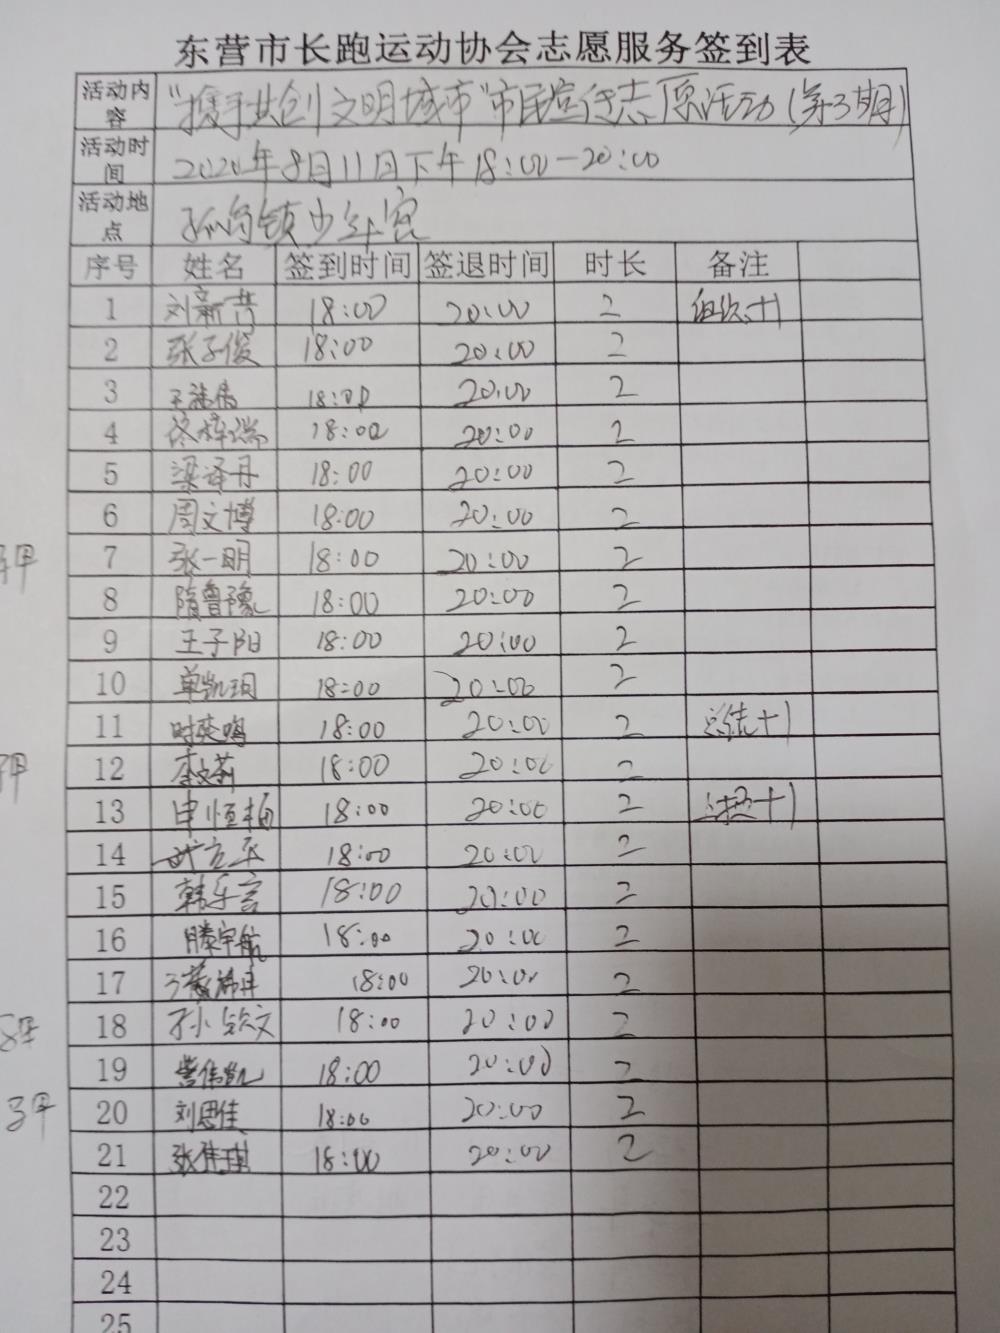 东营市长跑运动协会志愿服务签到表
活动内容 "携手共创文明城市"市民宣传志愿活动(第3期)
活动时间 2020年8月11日下午18:00-20:00
活动地点 孤岛镇少年宫
序号 姓名 签到时间 签退时间 时长 备注
1 刘新 18:00 20:00 2 组织+1
2 张子俊 18:00 20:00 2
3 王 18:00 20:00 2
4 18:00 20:00 2
5 梁泽丹 18:00 20:00 2
6 周文博 18:00 20:00 2
7 张一明 18:00 20:00 2
8 隋鲁豫 18:00 20:00 2
9 王子阳 18:00 20:00 2
10 单凯珂 18:00 20:00 2
11 时奕鸣 18:00 20:00 2 总结+1
12 李文莉 18:00 20:00 2
13 申恒柏 18:00 20:00 2 +1
14 18:00 20:00 2
15 韩乐言 18:00 20:00 2
16 滕宇航 18:00 20:00 2
17 18:00 20:00 2
18 孙钦文 18:00 20:00 2
19 伟凯 18:00 20:00 2
20 刘思佳 18:00 20:00 2
21 张倩琪 18:00 20:00 2
22
23
24
25